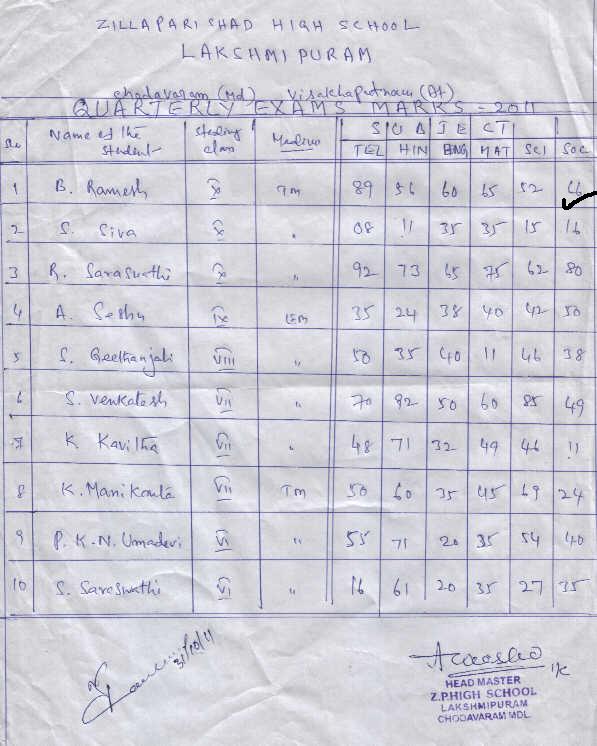 ZILLAPARISHAD HIGH SCHOOL
LAKSHMIPURAM
Chodavaram (Md) Visakhapatnam (Dt)
QUARTERLY EXAMS MARKS - 2011
Name of the Student Studing class Medium SUBJECT
TEL HIN ENG MAT SCI SOC
1 B. Ramesh X TM 89 56 60 65 52 66
2 S. Siva X " 08 11 35 35 15 16
3 R. Saraswathi X " 92 73 65 75 62 80
4 A. Seshu IX EM 35 24 38 40 42 50
5 S. Geethanjali VIII " 50 35 40 11 46 38
6 S. Venkatesh VII " 70 92 50 60 85 49
7 K Kavitha VII " 48 71 32 49 46 11
8 K. Manikanta VII TM 50 60 35 45 69 24
9 P. K. N. Umadevi VI " 55 71 20 35 54 40
10 S. Saraswathi VI " 16 61 20 35 27 35
31/10/11
HEAD MASTER
Z.P.HIGH SCHOOL
LAKSHMIPURAM
CHODAVARAM MDL.